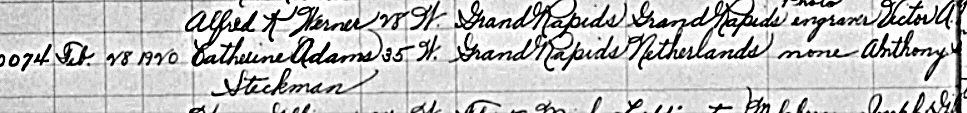 Photo
Alfred K Werner 28 W. Grand Rapids Grand Rapids engraver Victor A
0074 Feb. 28 1920 Catherine Adams 35 W. Grand Rapids Netherlands none Anthony
Steckman